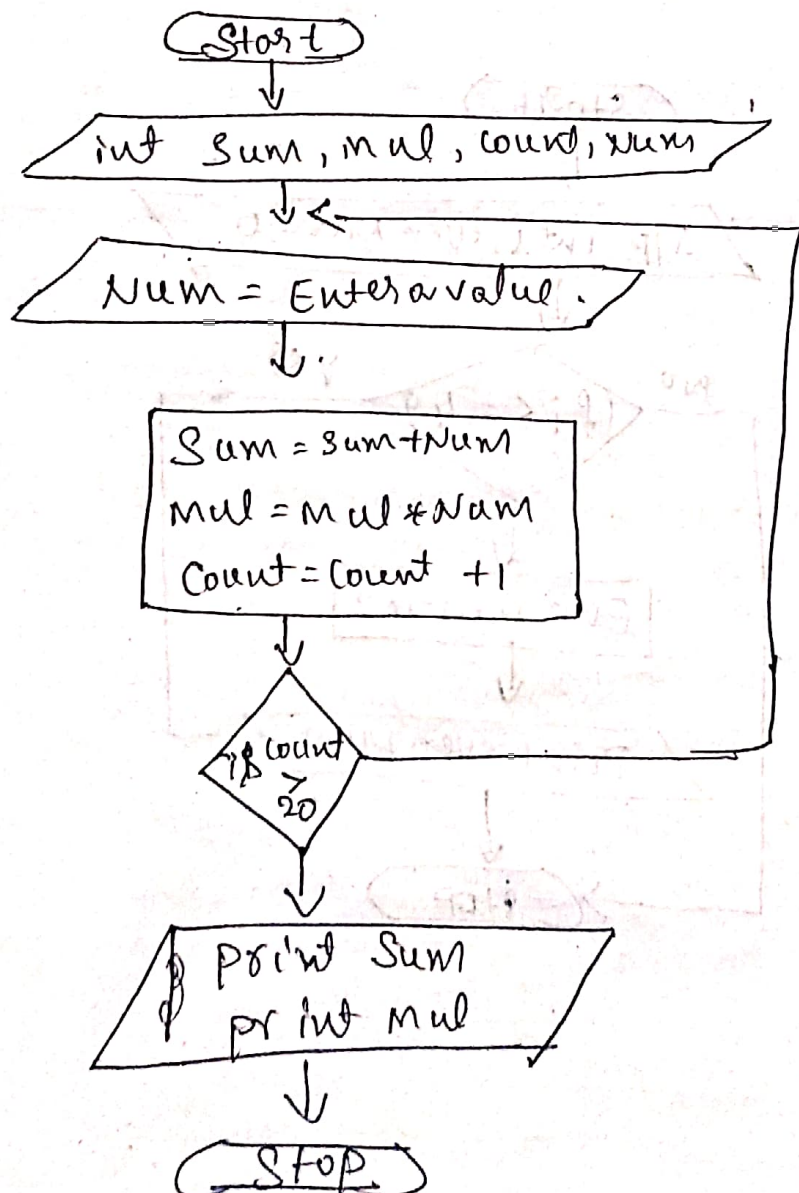 Start
int Sum, mul, count, Num
Num = Enter a value.
Sum = sum+Num
Mul = Mul * Num
Count = Count +1
if count
>
20
print Sum
print Mul
Stop